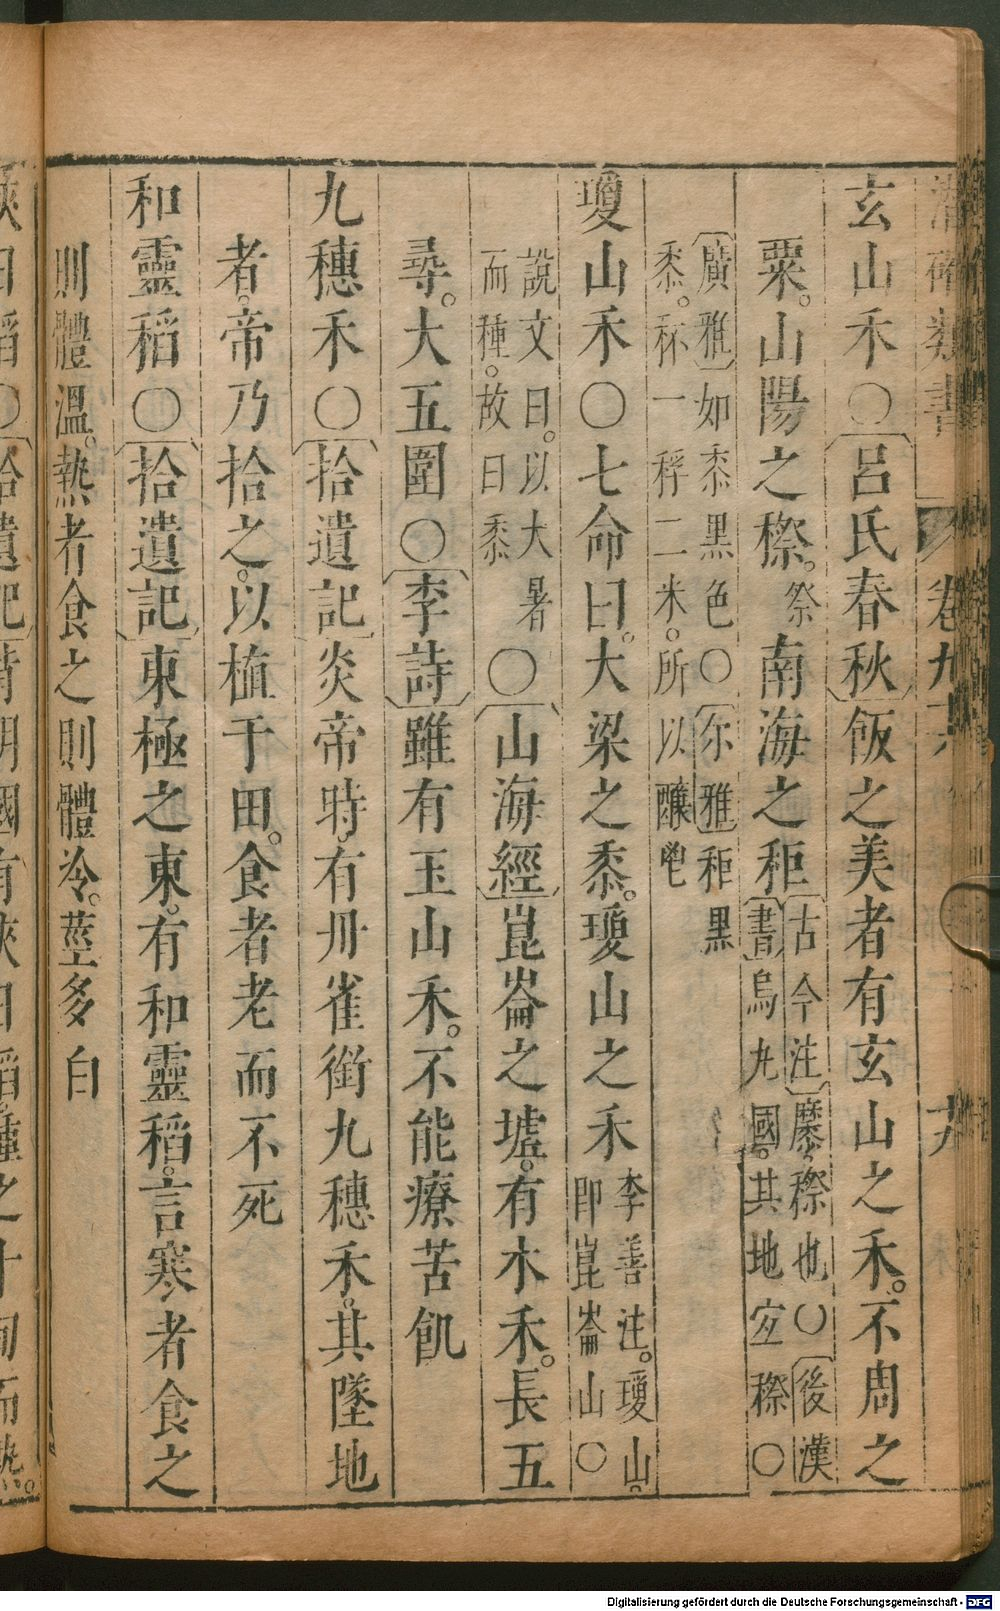 潛確類書 卷九十
玄山禾○〔呂氏春秋〕飯之美者有玄山之禾。不周之
粟。山陽之穄。祭南海之秬〔古今注〕穈。穄也○〔後漢
書〕烏九國。其地宜穄○
〔廣雅〕如黍黑色○〔尔雅〕秬黑
黍。秠一稃二米。所以釀鬯
瓊山禾○七命曰。大梁之黍。瓊山之禾李善注。瓊山。
即崑崙山○
說文曰。以大暑
而種。故曰黍
○〔山海經〕崑崙之墟。有木禾。長五
尋。大五圍○〔李詩〕雖有玉山禾。不能療苦飢
九穗禾○〔拾遺記〕炎帝時。有丹雀銜九穗禾。其墜地
者。帝乃拾之。以植于田。食者老而不死
和靈稻○〔拾遺記〕東極之東。有和靈稻。言寒者食之
則體溫。熱者食之則體冷。莖多白
浹日稻○〔拾遺記〕背明國有浹日稻。種之十旬而熟。
Digitalisierung gefördert durch die Deutsche Forschungsgemeinschaft - DFG